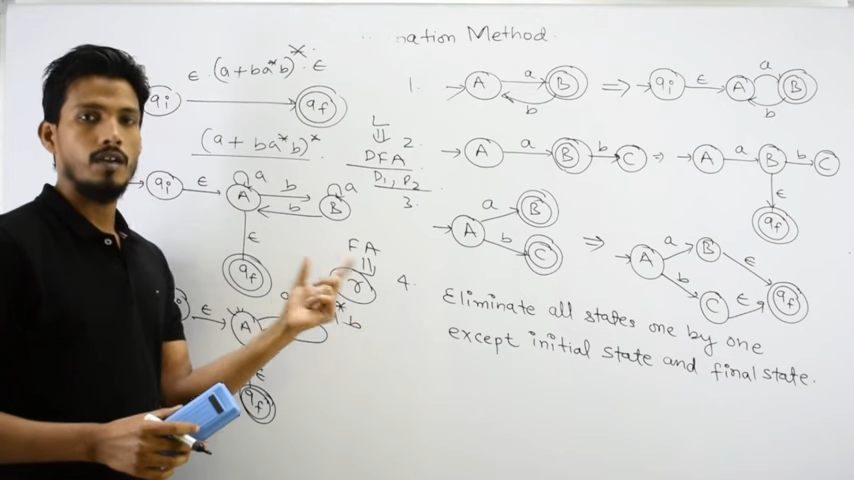 nation Method
ε.(a+ba*b)*.ε
qi
qf
(a + ba*b)*
qi ε A a b B a b
ε
qf
L
⇓
DFA
D1, P2
FA
⇓
r
ε A
* b
ε
qf
1. A a B b ⇒ qi ε A a B b
2. A a B b C ⇒ A a B b C
ε
qf
3. A a B b C ⇒ A a B b C ε ε qf
4. Eliminate all states one by one
except initial state and final state.